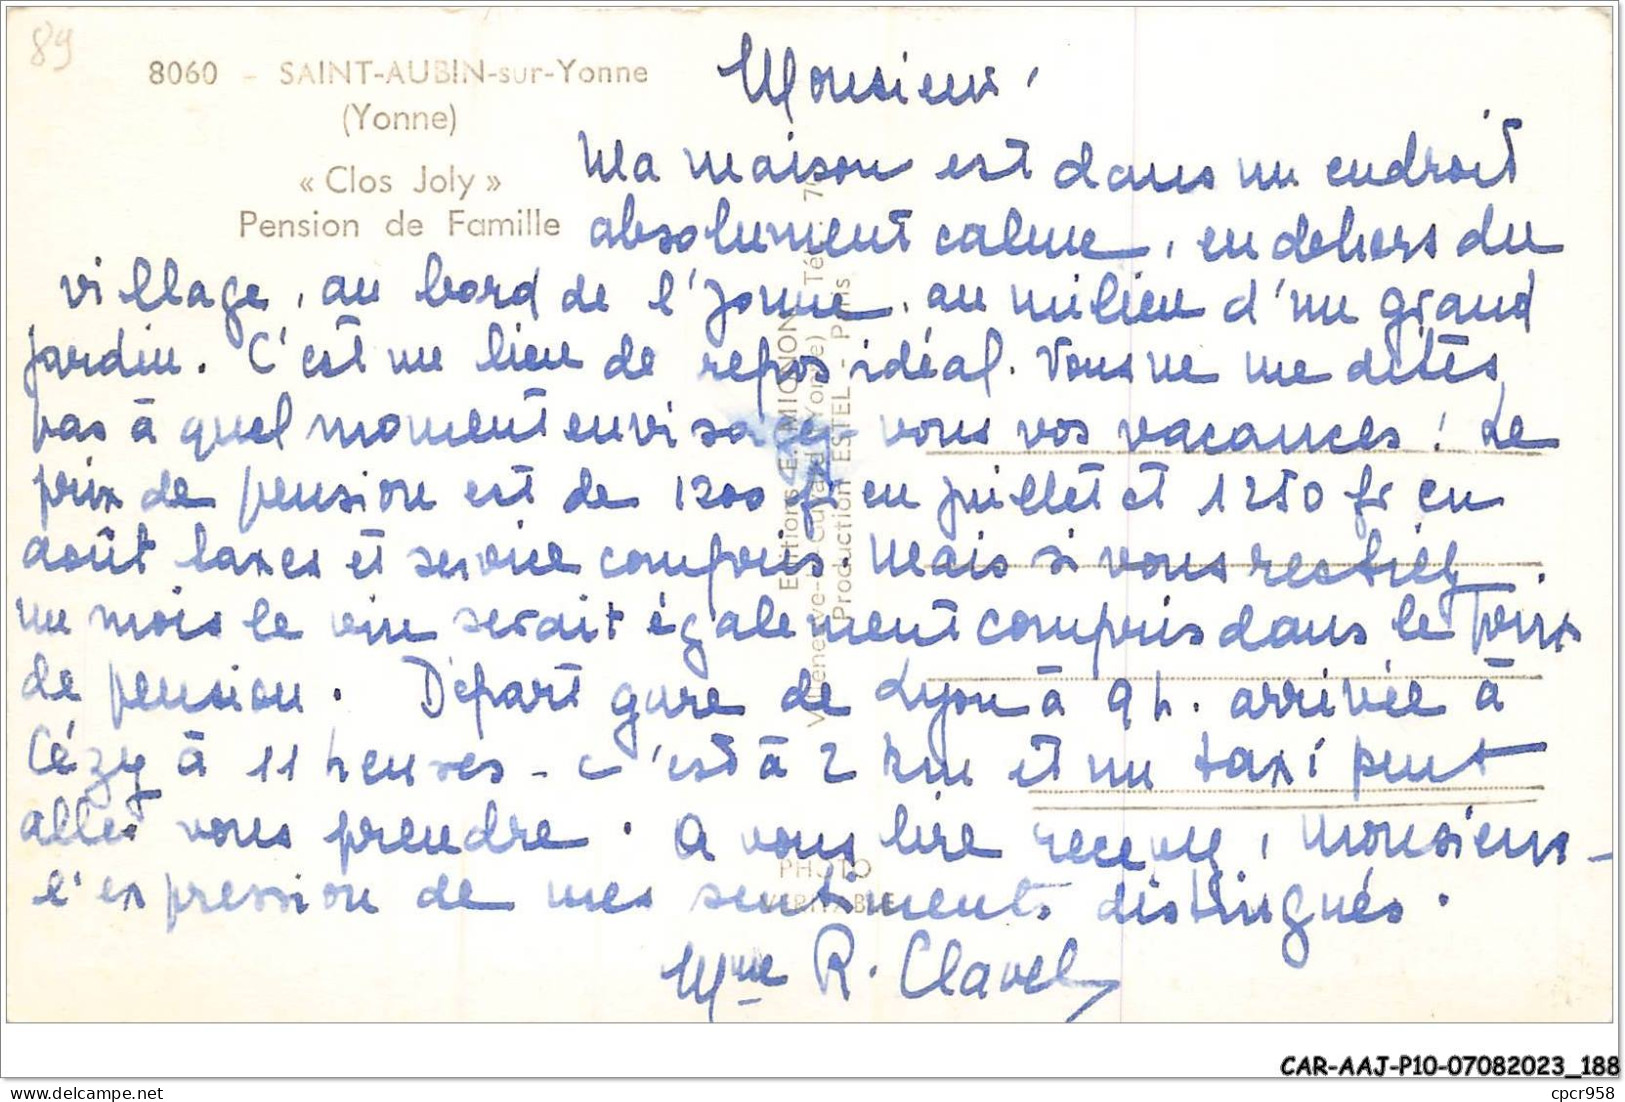 89
8060 - SAINT-AUBIN-sur-Yonne
(Yonne)
« Clos Joly »
Pension de Famille
Monsieur,
Ma maison est dans un endroit
absolument calme, en dehors du
village, au bord de l'Yonne, au milieu d'un grand
jardin. C'est un lieu de repos idéal. Vous ne me dites
pas à quel moment envisagez vous vos vacances ! Le
prix de pension est de 1200 fr en juillet et 1250 fr en
août taxes et service compris. Mais si vous restiez
un mois le vin serait également compris dans le prix
de pension. Départ gare de Lyon à 9 h. arrivée à
Cézy à 11 heures - c'est à 2 km et un taxi peut
aller vous prendre. A vous lire recevez, Monsieur -
l'expression de mes sentiments distingués.
Mme R. Clavel
Editions E. MIGNON
Villeneuve-la-Guyard (Yonne) Tél. : 7
Production ESTEL - Paris
PHOTO
VÉRITABLE
CAR-AAJ-P10-07082023_188
https://www.delcampe.net
cpcr958